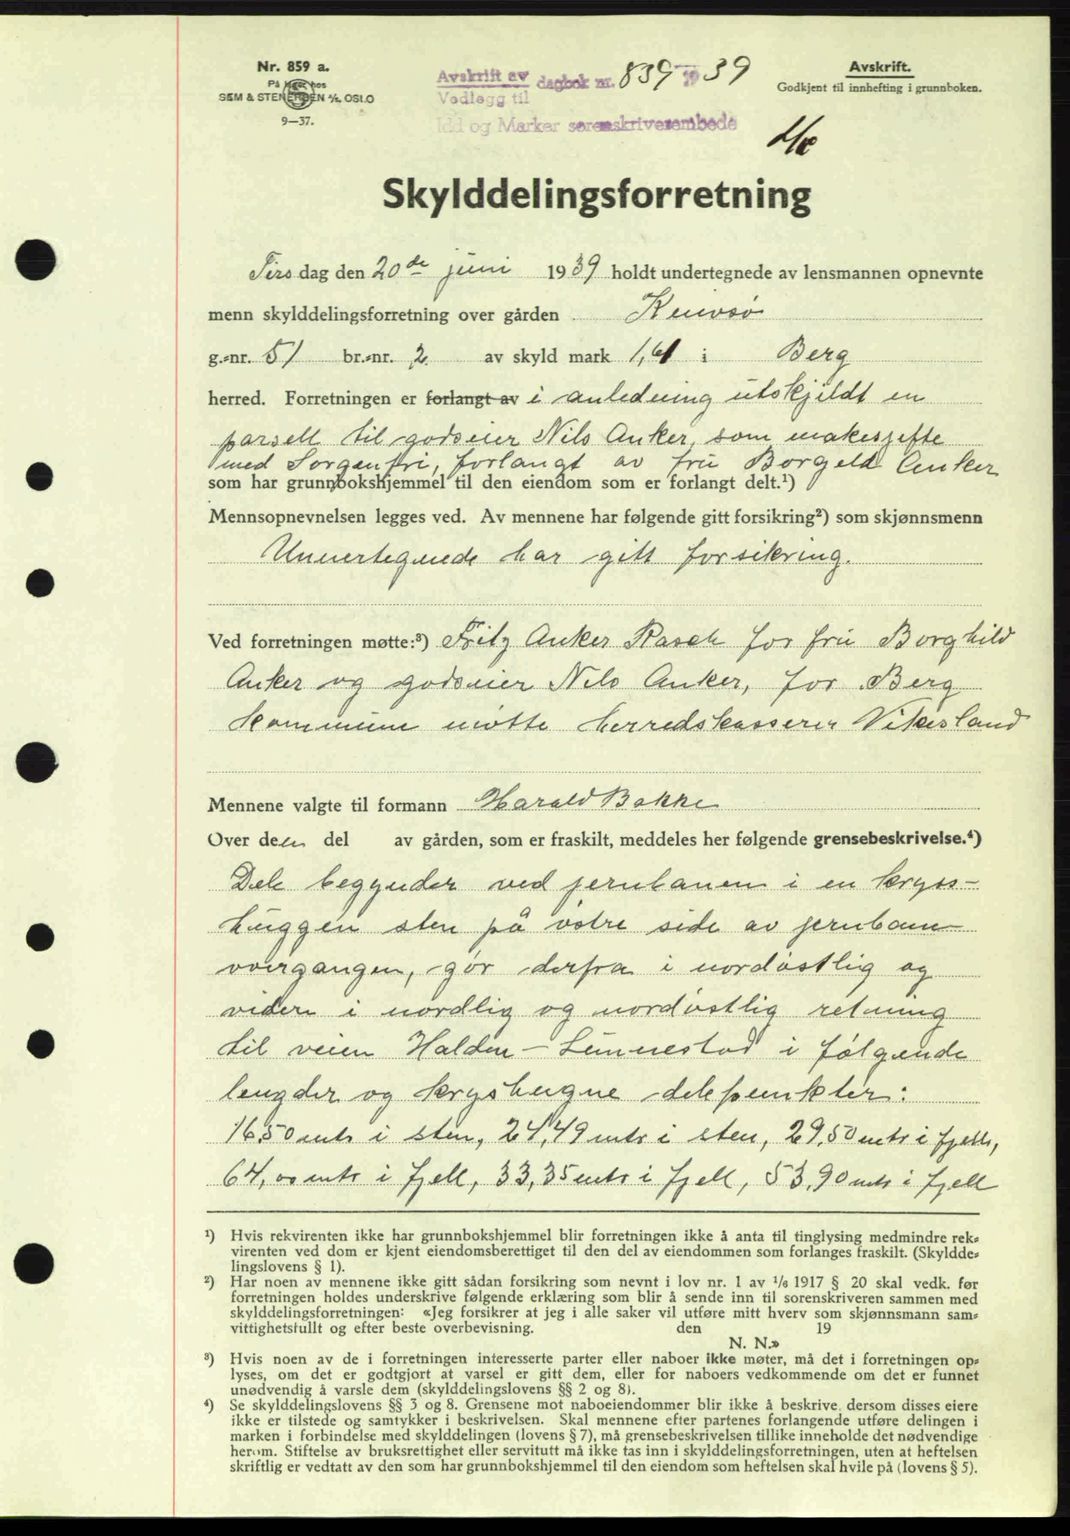 Nr. 859 a.
På lager hos
SEM & STENERSEN A/S, OSLO
9—37.
Avskrift av dagbok nr. 839 1939
Vedlegg til
Idd og Marker sorenskriverembede
Avskrift.
Godkjent til innhefting i grunnboken.
Skylddelingsforretning
Tirsdag den 20de juni 1939 holdt undertegnede av lensmannen opnevnte
menn skylddelingsforretning over gården Knivsø
g.-nr. 51 br.-nr. 2 av skyld mark 1,61 i Berg
herred. Forretningen er forlangt av i anledning utskjildt en
parsell til godseier Nils Anker, som makesjifte
med Sorgenfri, forlangt av fru Borgeld Anker
som har grunnbokshjemmel til den eiendom som er forlangt delt.¹)
Mennsopnevnelsen legges ved. Av mennene har følgende gitt forsikring²) som skjønnsmenn
Unnertegnede har gitt forsikring.
Ved forretningen møtte:³) Fritz Anker Rasch for fru Borghild
Anker og godseier Nils Anker, for Berg
kommune møtte herredskasserer Vikesland
Mennene valgte til formann Harald Bakke
Over den del av gården, som er fraskilt, meddeles her følgende grensebeskrivelse.⁴)
Dele begynder ved jernbanen i en kryss-
huggen sten på østre side av jernbane-
overgangen, går derfra i nordøstlig og
videre i nordlig og nordøstlig retning
til veien Halden - Sunnestad i følgende
lengder og kryshugne delepunkter:
16,50 mtr i sten, 24,49 mtr i sten, 29,50 mtr i fjell,
64,00 mtr i fjell, 33,35 mtr i fjell, 53,90 mtr i fjell
¹) Hvis rekvirenten ikke har grunnbokshjemmel blir forretningen ikke å anta til tinglysing medmindre rek-
virenten ved dom er kjent eiendomsberettiget til den del av eiendommen som forlanges fraskilt. (Skyldde-
lingslovens § 1).
²) Har noen av mennene ikke gitt sådan forsikring som nevnt i lov nr. 1 av 1/6 1917 § 20 skal vedk. før
forretningen holdes underskrive følgende erklæring som blir å sende inn til sorenskriveren sammen med
skylddelingsforretningen: «Jeg forsikrer at jeg i alle saker vil utføre mitt hverv som skjønnsmann sam-
vittighetsfullt og efter beste overbevisning. den 19
N. N.»
³) Hvis noen av de i forretningen interesserte parter eller naboer ikke møter, må det i forretningen op-
lyses, om det er godtgjort at varsel er gitt dem, eller for naboers vedkommende om det er funnet
unødvendig å varsle dem (skylddelingslovens §§ 2 og 8).
⁴) Se skylddelingslovens §§ 3 og 8. Grensene mot naboeiendommer blir ikke å beskrive, dersom disses eiere
ikke er tilstede og samtykker i beskrivelsen. Skal mennene efter partenes forlangende utføre delingen i
marken i forbindelse med skylddelingen (lovens § 7), må grensebeskrivelsen tillike inneholde det nødvendige
herom. Stiftelse av bruksrettighet eller servitutt må ikke tas inn i skylddelingsforretningen, uten at heftelsen
skriftlig er vedtatt av den som har grunnbokshjemmel til den eiendom som heftelsen skal hvile på (lovens § 5).